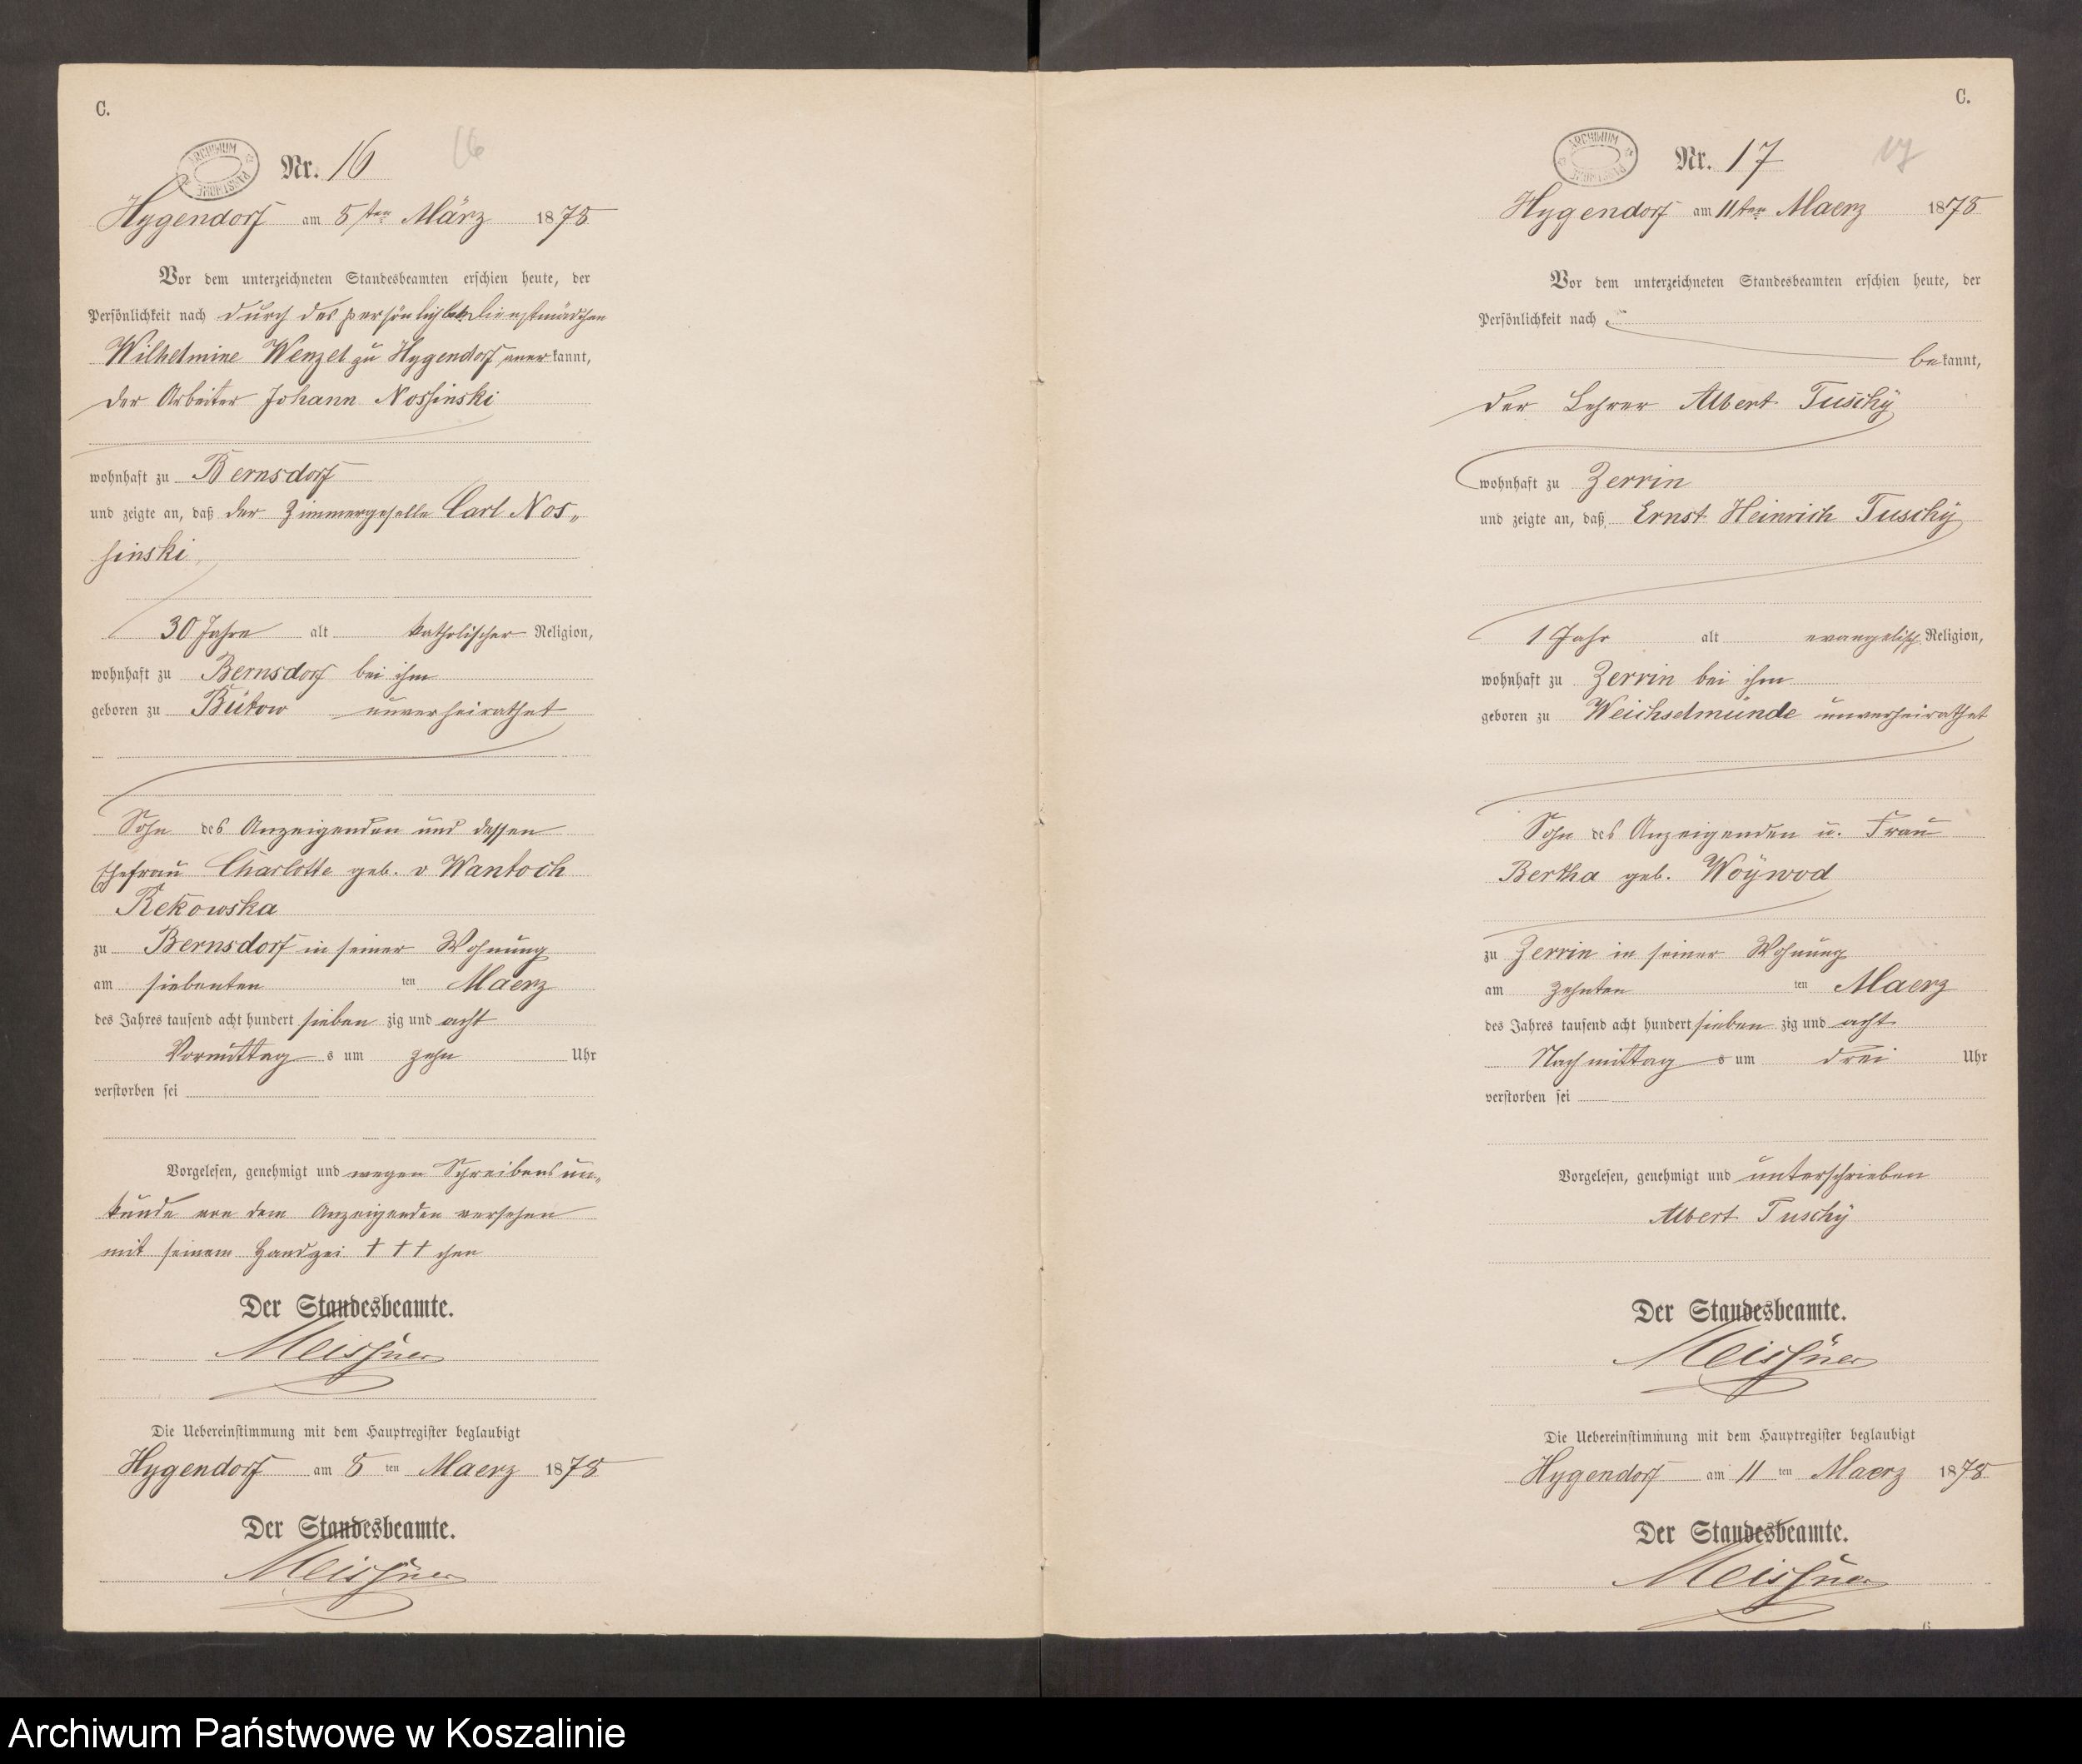 C.
ARCHIWUM PAŃSTWOWE
Nr. 16
16
Hygendorf am 8ten März 1878
Vor dem unterzeichneten Standesbeamten erschien heute, der
Persönlichkeit nach durch das persönlich Dienstmädchen
Wilhelmine Wenzel zu Hygendorf anerkannt,
der Arbeiter Johann Nossinski
wohnhaft zu Bernsdorf
und zeigte an, daß der Zimmergeselle Carl Nos„
sinski
30 Jahre alt katholischer Religion,
wohnhaft zu Bernsdorf bei ihm
geboren zu Bütow unverheirathet
Sohn des Anzeigenden und dessen
Ehefrau Charlotte geb. v Wantoch
Rekowska
zu Bernsdorf in seiner Wohnung
am siebenten ten Maerz
des Jahres tausend acht hundert sieben zig und acht
Vormittag s um zehn Uhr
verstorben sei
Vorgelesen, genehmigt und wegen Schreibens un„
kunde von dem Anzeigenden versehen
mit seinem Handzei † † † chen
Der Standesbeamte.
Meissner
Die Uebereinstimmung mit dem Hauptregister beglaubigt
Hygendorf am 8 ten Maerz 1878
Der Standesbeamte.
Meissner
C.
ARCHIWUM PAŃSTWOWE
Nr. 17
17
Hygendorf am 11ten Maerz 1878
Vor dem unterzeichneten Standesbeamten erschien heute, der
Persönlichkeit nach
bekannt,
der Lehrer Albert Tuschÿ
wohnhaft zu Zerrin
und zeigte an, daß Ernst Heinrich Tuschÿ
1 Jahr alt evangelisch Religion,
wohnhaft zu Zerrin bei ihm
geboren zu Weichselmünde unverheirathet
Sohn des Anzeigenden u. Frau
Bertha geb. Woÿwod
zu Zerrin in seiner Wohnung
am zehnten ten Maerz
des Jahres tausend acht hundert sieben zig und acht
Nachmittag s um drei Uhr
verstorben sei
Vorgelesen, genehmigt und unterschrieben
Albert Tuschÿ
Der Standesbeamte.
Meissner
Die Uebereinstimmung mit dem Hauptregister beglaubigt
Hygendorf am 11 ten Maerz 1878
Der Standesbeamte.
Meissner
6
Archiwum Państwowe w Koszalinie